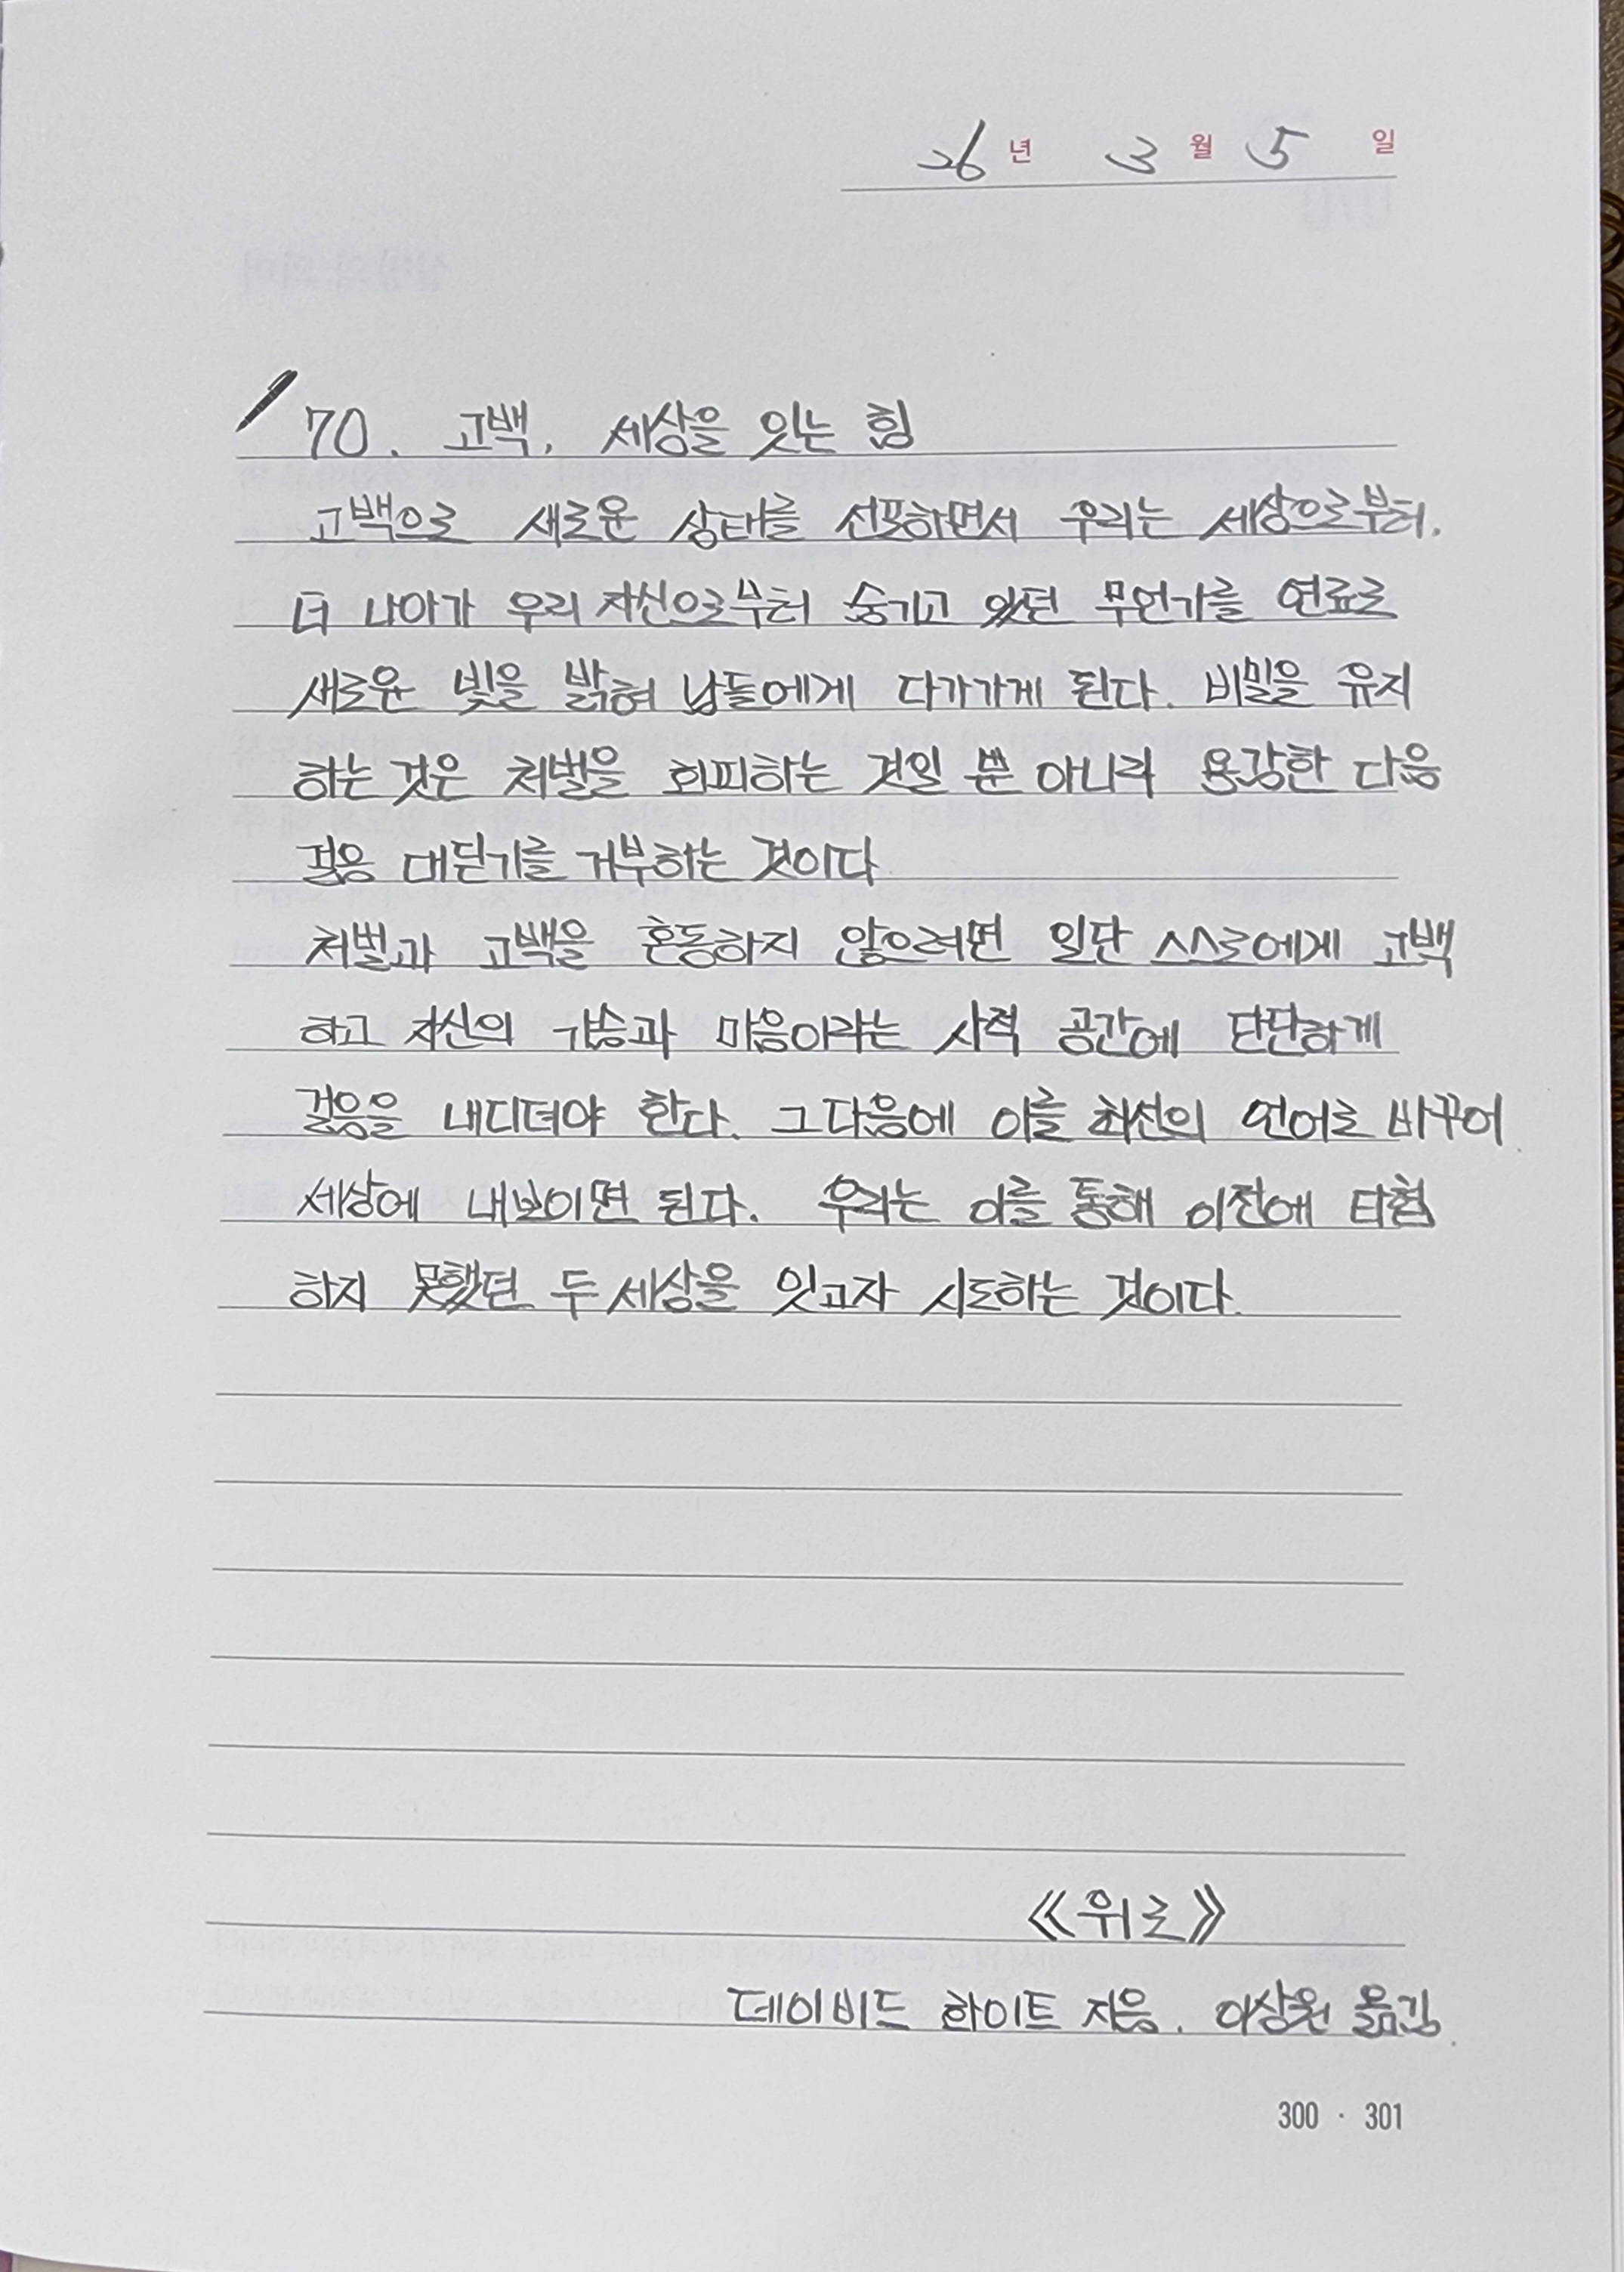 26년 3월 5일
70. 고백, 세상을 잇는 힘
고백으로 새로운 상태를 선포하면서 우리는 세상으로부터,
더 나아가 우리 자신으로부터 숨기고 있던 무언가를 연료로
새로운 빛을 밝혀 남들에게 다가가게 된다. 비밀을 유지
하는 것은 처벌을 회피하는 것일 뿐 아니라 용감한 다음
걸음 내딛기를 거부하는 것이다
처벌과 고백을 혼동하지 않으려면 일단 스스로에게 고백
하고 자신의 가슴과 마음이라는 사적 공간에 단단하게
걸음을 내디뎌야 한다. 그 다음에 이를 최선의 언어로 바꾸어
세상에 내보이면 된다. 우리는 이를 통해 이전에 타협
하지 못했던 두 세상을 잇고자 시도하는 것이다.
《위로》
데이비드 화이트 지음, 이상원 옮김.
300 · 301